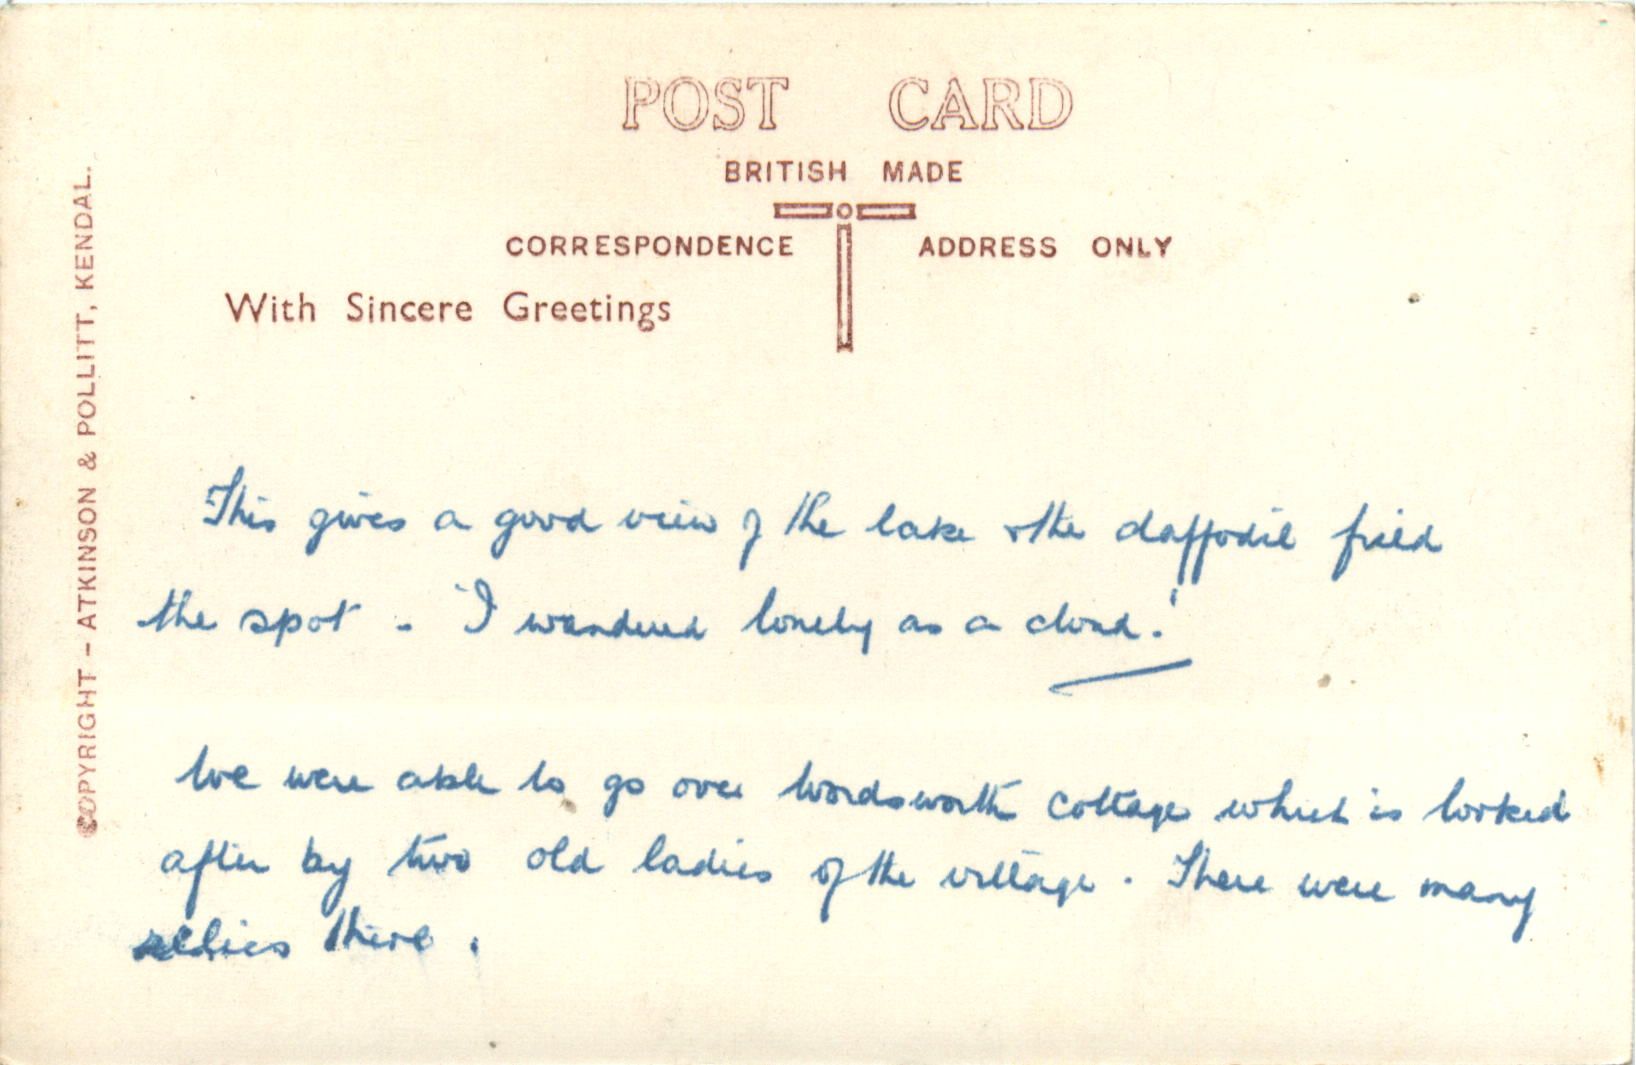 POST CARD
BRITISH MADE
CORRESPONDENCE ADDRESS ONLY
With Sincere Greetings
COPYRIGHT - ATKINSON & POLLITT, KENDAL.
This gives a good view of the lake & the daffodil field
the spot - 'I wandered lonely as a cloud.'
We were able to go over Wordsworth cottage which is looked
after by two old ladies of the village. There were many
relics there.